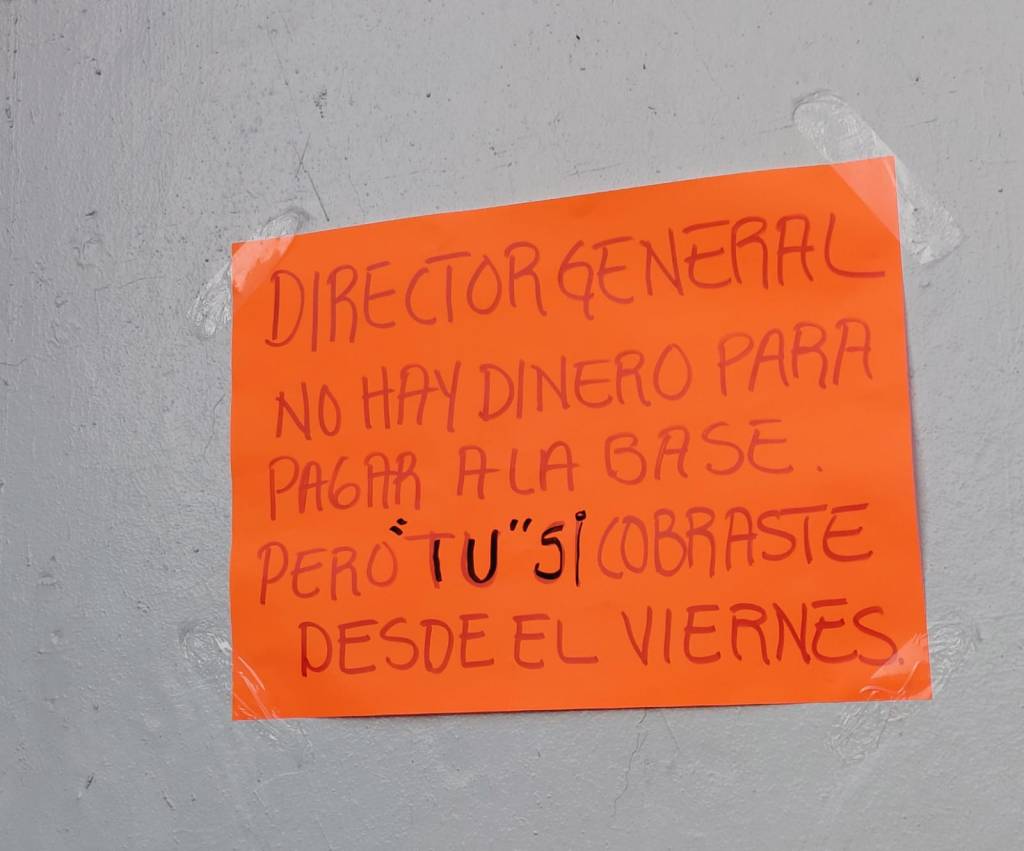 DIRECTOR GENERAL
NO HAY DINERO PARA
PAGAR A LA BASE.
PERO "TU" SI COBRASTE
DESDE EL VIERNES.